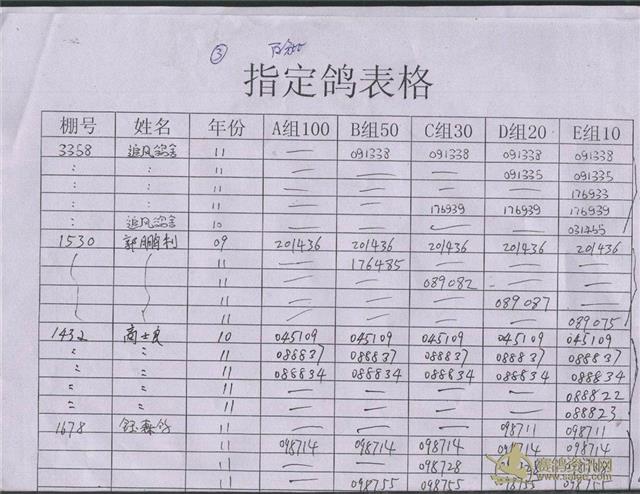 ③
指定鸽表格
棚号 姓名 年份 A组100 B组50 C组30 D组20 E组10
3358 追风鸽舍 11 — 091338 091338 091338 091338
〃 11 — — — 091335 091335
〃 11 — — — — 176933
〃 11 — — 176939 176939 176939
〃 追风鸽舍 10 — — — — 031455
1530 郭鹏利 09 201436 201436 201436 201436 201436
11 — 176485 — — —
11 — — 089082 — —
11 — — — 089087 —
11 — — — — 089075
1432 商士良 10 045109 045109 045109 045109 045109
〃 〃 11 088837 088837 088837 088837 088837
〃 〃 11 088834 088834 088834 088834 088834
〃 〃 11 — — — — 088822
〃 〃 11 — — — — 088823
1678 11 — — — 098711 098711
11 098714 098714 098714 098714 098714
11 — — 098728
11 — 098755 098755 098755
赛鸽资讯网
www.saige.com